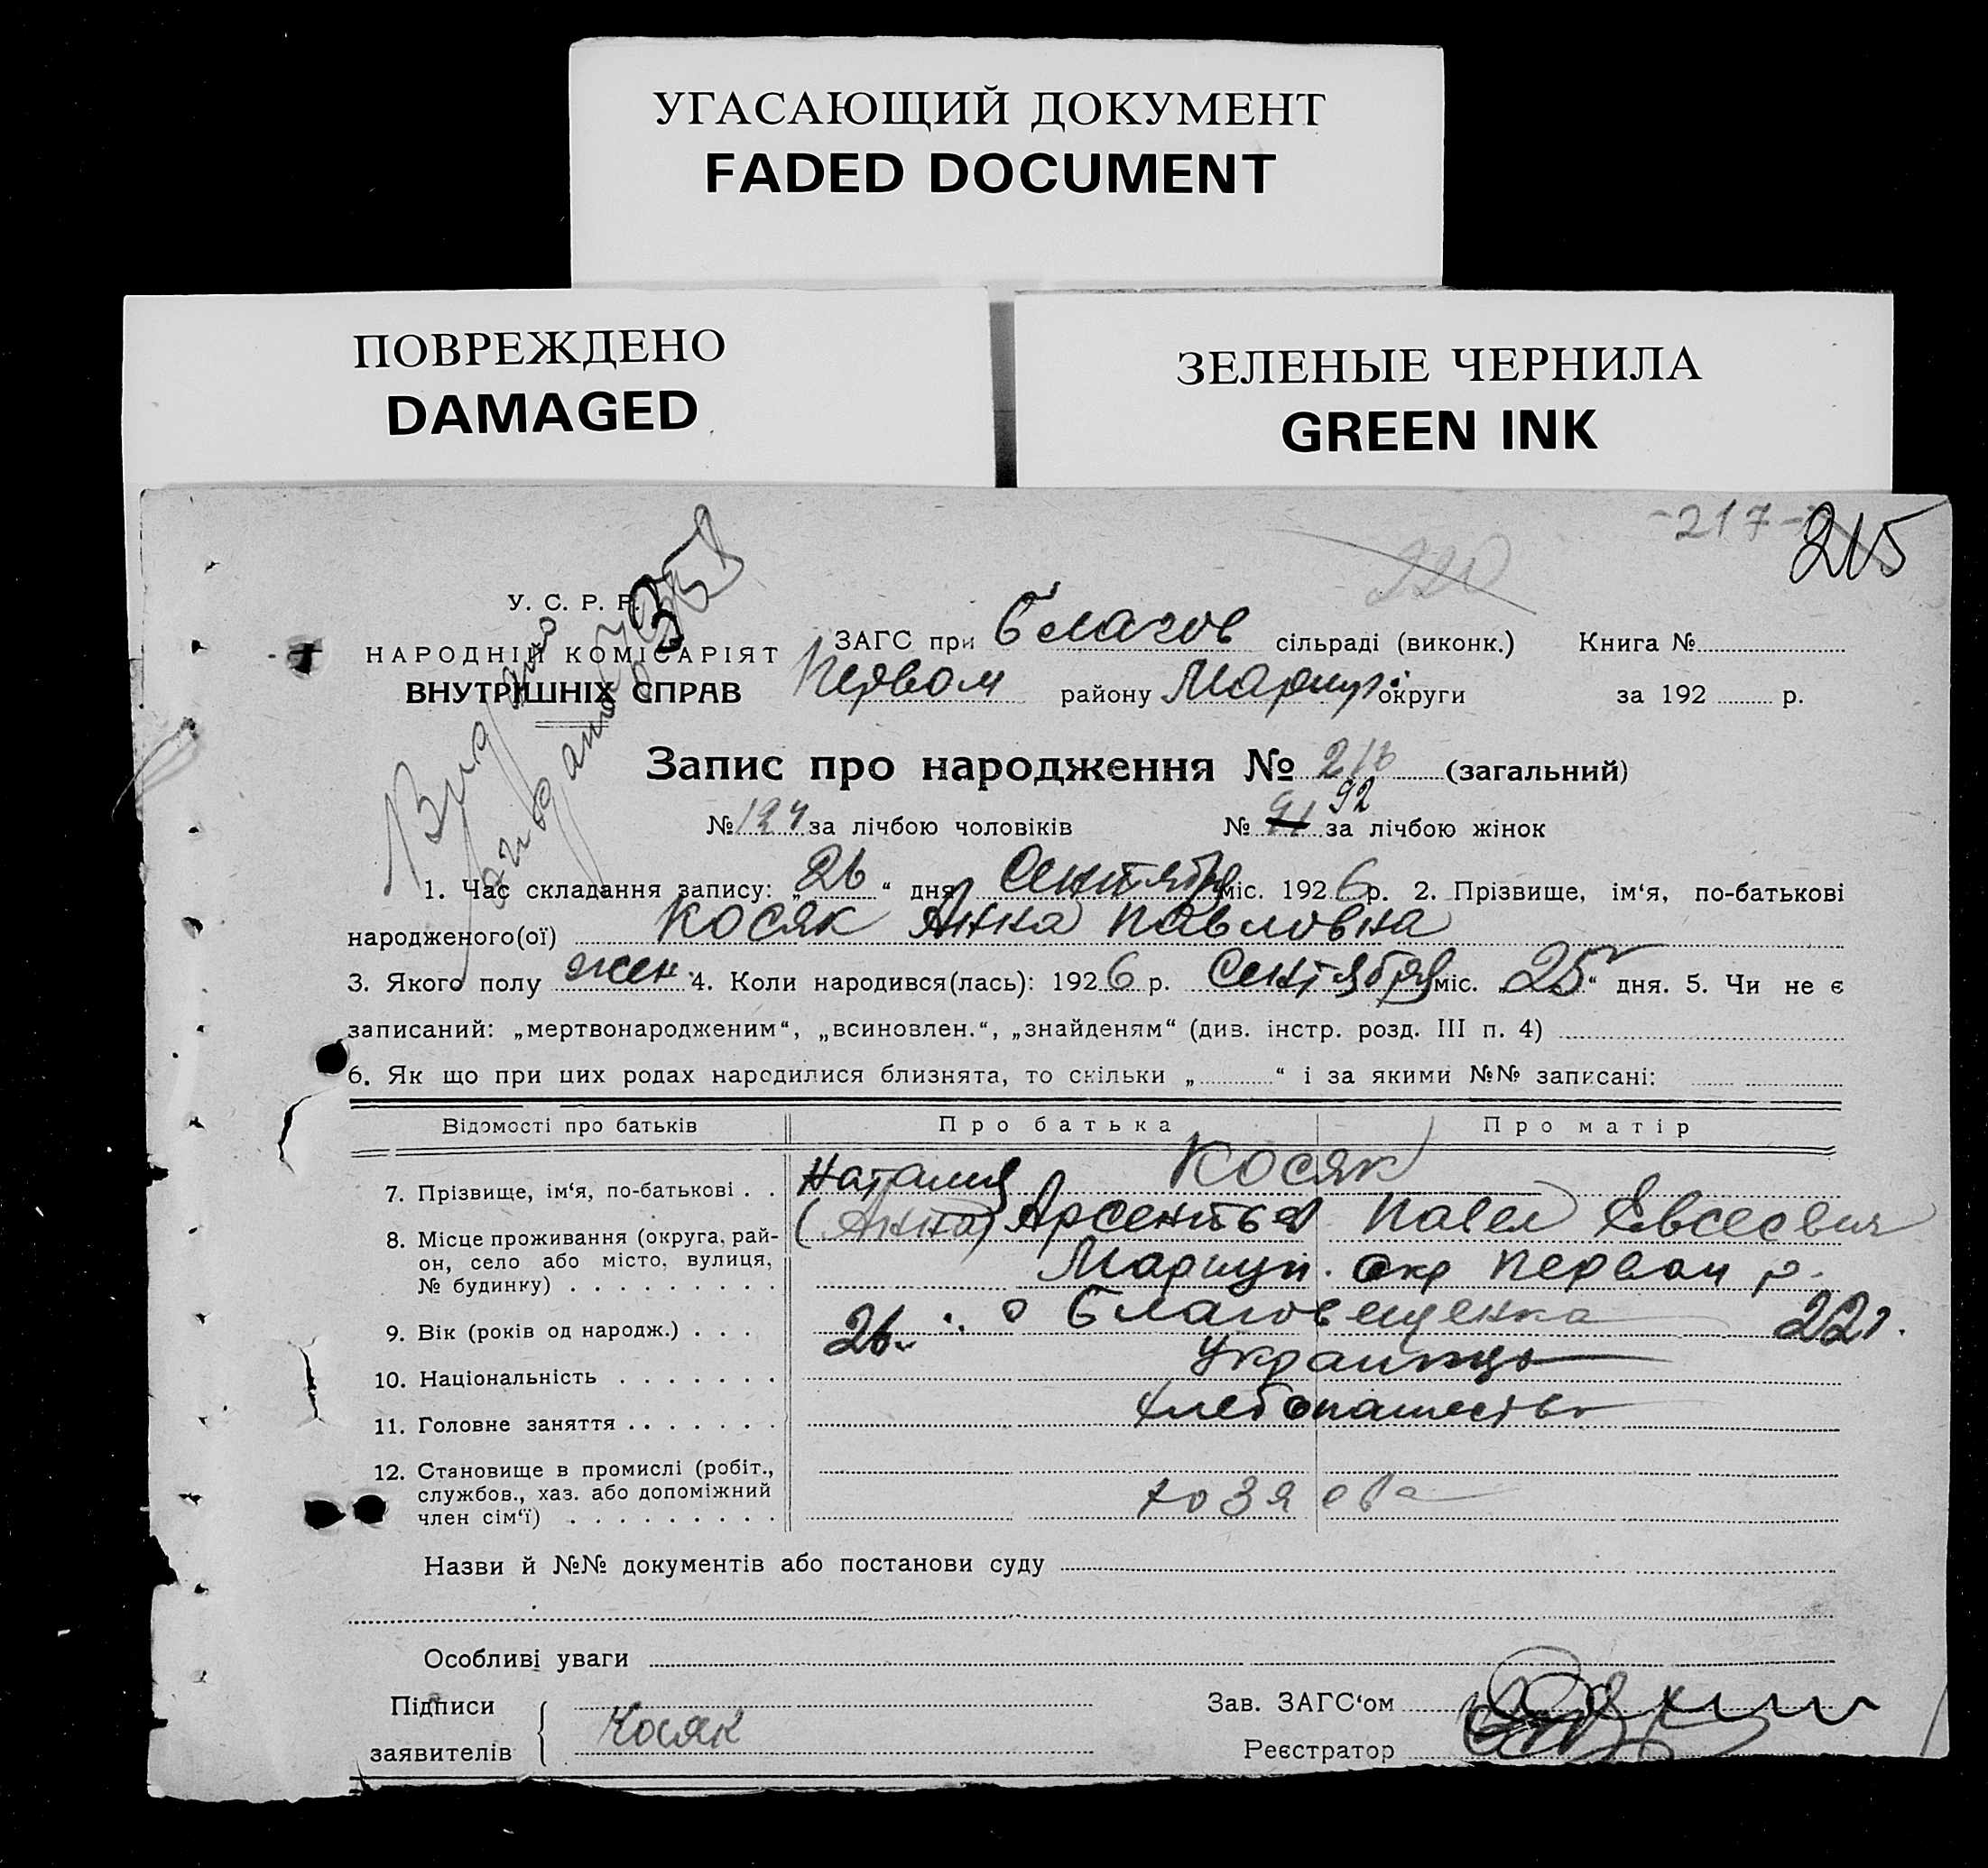 УГАСАЮЩИЙ ДОКУМЕНТ
FADED DOCUMENT
ПОВРЕЖДЕНО
DAMAGED
ЗЕЛЕНЫЕ ЧЕРНИЛА
GREEN INK
-217-
215
220
У. С. Р. Р.
НАРОДНІЙ КОМІСАРІЯТ
ВНУТРІШНІХ СПРАВ
ЗАГС при Благов сільраді (виконк.) Книга №
Первом району Мариуп. округи за 192 р.
Запис про народження № (загальний)
№ 124 за лічбою чоловіків № 91 92 за лічбою жінок
1. Час складання запису: „ 26 “ дня Сентября міс. 1926 р. 2. Прізвище, ім‘я, по-батькові
народженого(ої) Косяк Анна Павловна
3. Якого полу жен. 4. Коли народився(лась): 1926 р. Сентября міс. „ 25 “ дня. 5. Чи не є
записаний: „мертвонародженим“, „всиновлен.“, „знайденям“ (див. інстр. розд. III п. 4)
6. Як що при цих родах народилися близнята, то скільки „ “ і за якими №№ записані:
Відомості про батьків Про батька Про матір
7. Прізвище, ім‘я, по-батькові . . Наталия Косяк
(Анна) Арсентьев Павел Евсеевич
8. Місце проживання (округа, рай-
он, село або місто, вулиця,
№ будинку) Мариуп. окр Первом р.
с Благовещенка
9. Вік (років од народж.) . . . 26 22
10. Національність Украинцы
11. Головне заняття хлебопашество
12. Становище в промислі (робіт.,
службов., хаз. або допоміжний
член сім‘ї) хозяева
Назви й №№ документів або постанови суду
Особливі уваги
Підписи
заявителів Косяк
Зав. ЗАГС‘ом
Реєстратор